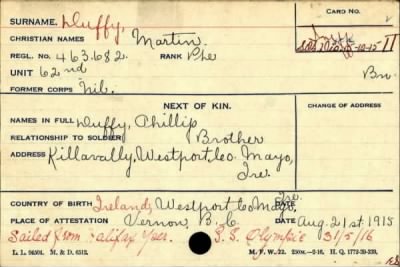 SURNAME. Duffy,
CARD NO.
CHRISTIAN NAMES Martin.
REGL. NO. 463682. RANK Pte
UNIT 62nd
FORMER CORPS Nil.
NEXT OF KIN.
CHANGE OF ADDRESS
NAMES IN FULL Duffy, Phillip
RELATIONSHIP TO SOLDIER Brother
ADDRESS Killavally, Westport, Co. Mayo,
Ire.
COUNTRY OF BIRTH Ireland, Westport Co Mayo, Ire.
DATE
PLACE OF ATTESTATION Vernon B.C. DATE Aug. 21st 1915
Sailed from Halifax per. S.S. Olympic 31/5/16
L. L. 96501. M. & D. 6512.
M. F. W. 22.
H. Q. 1772-39-339.